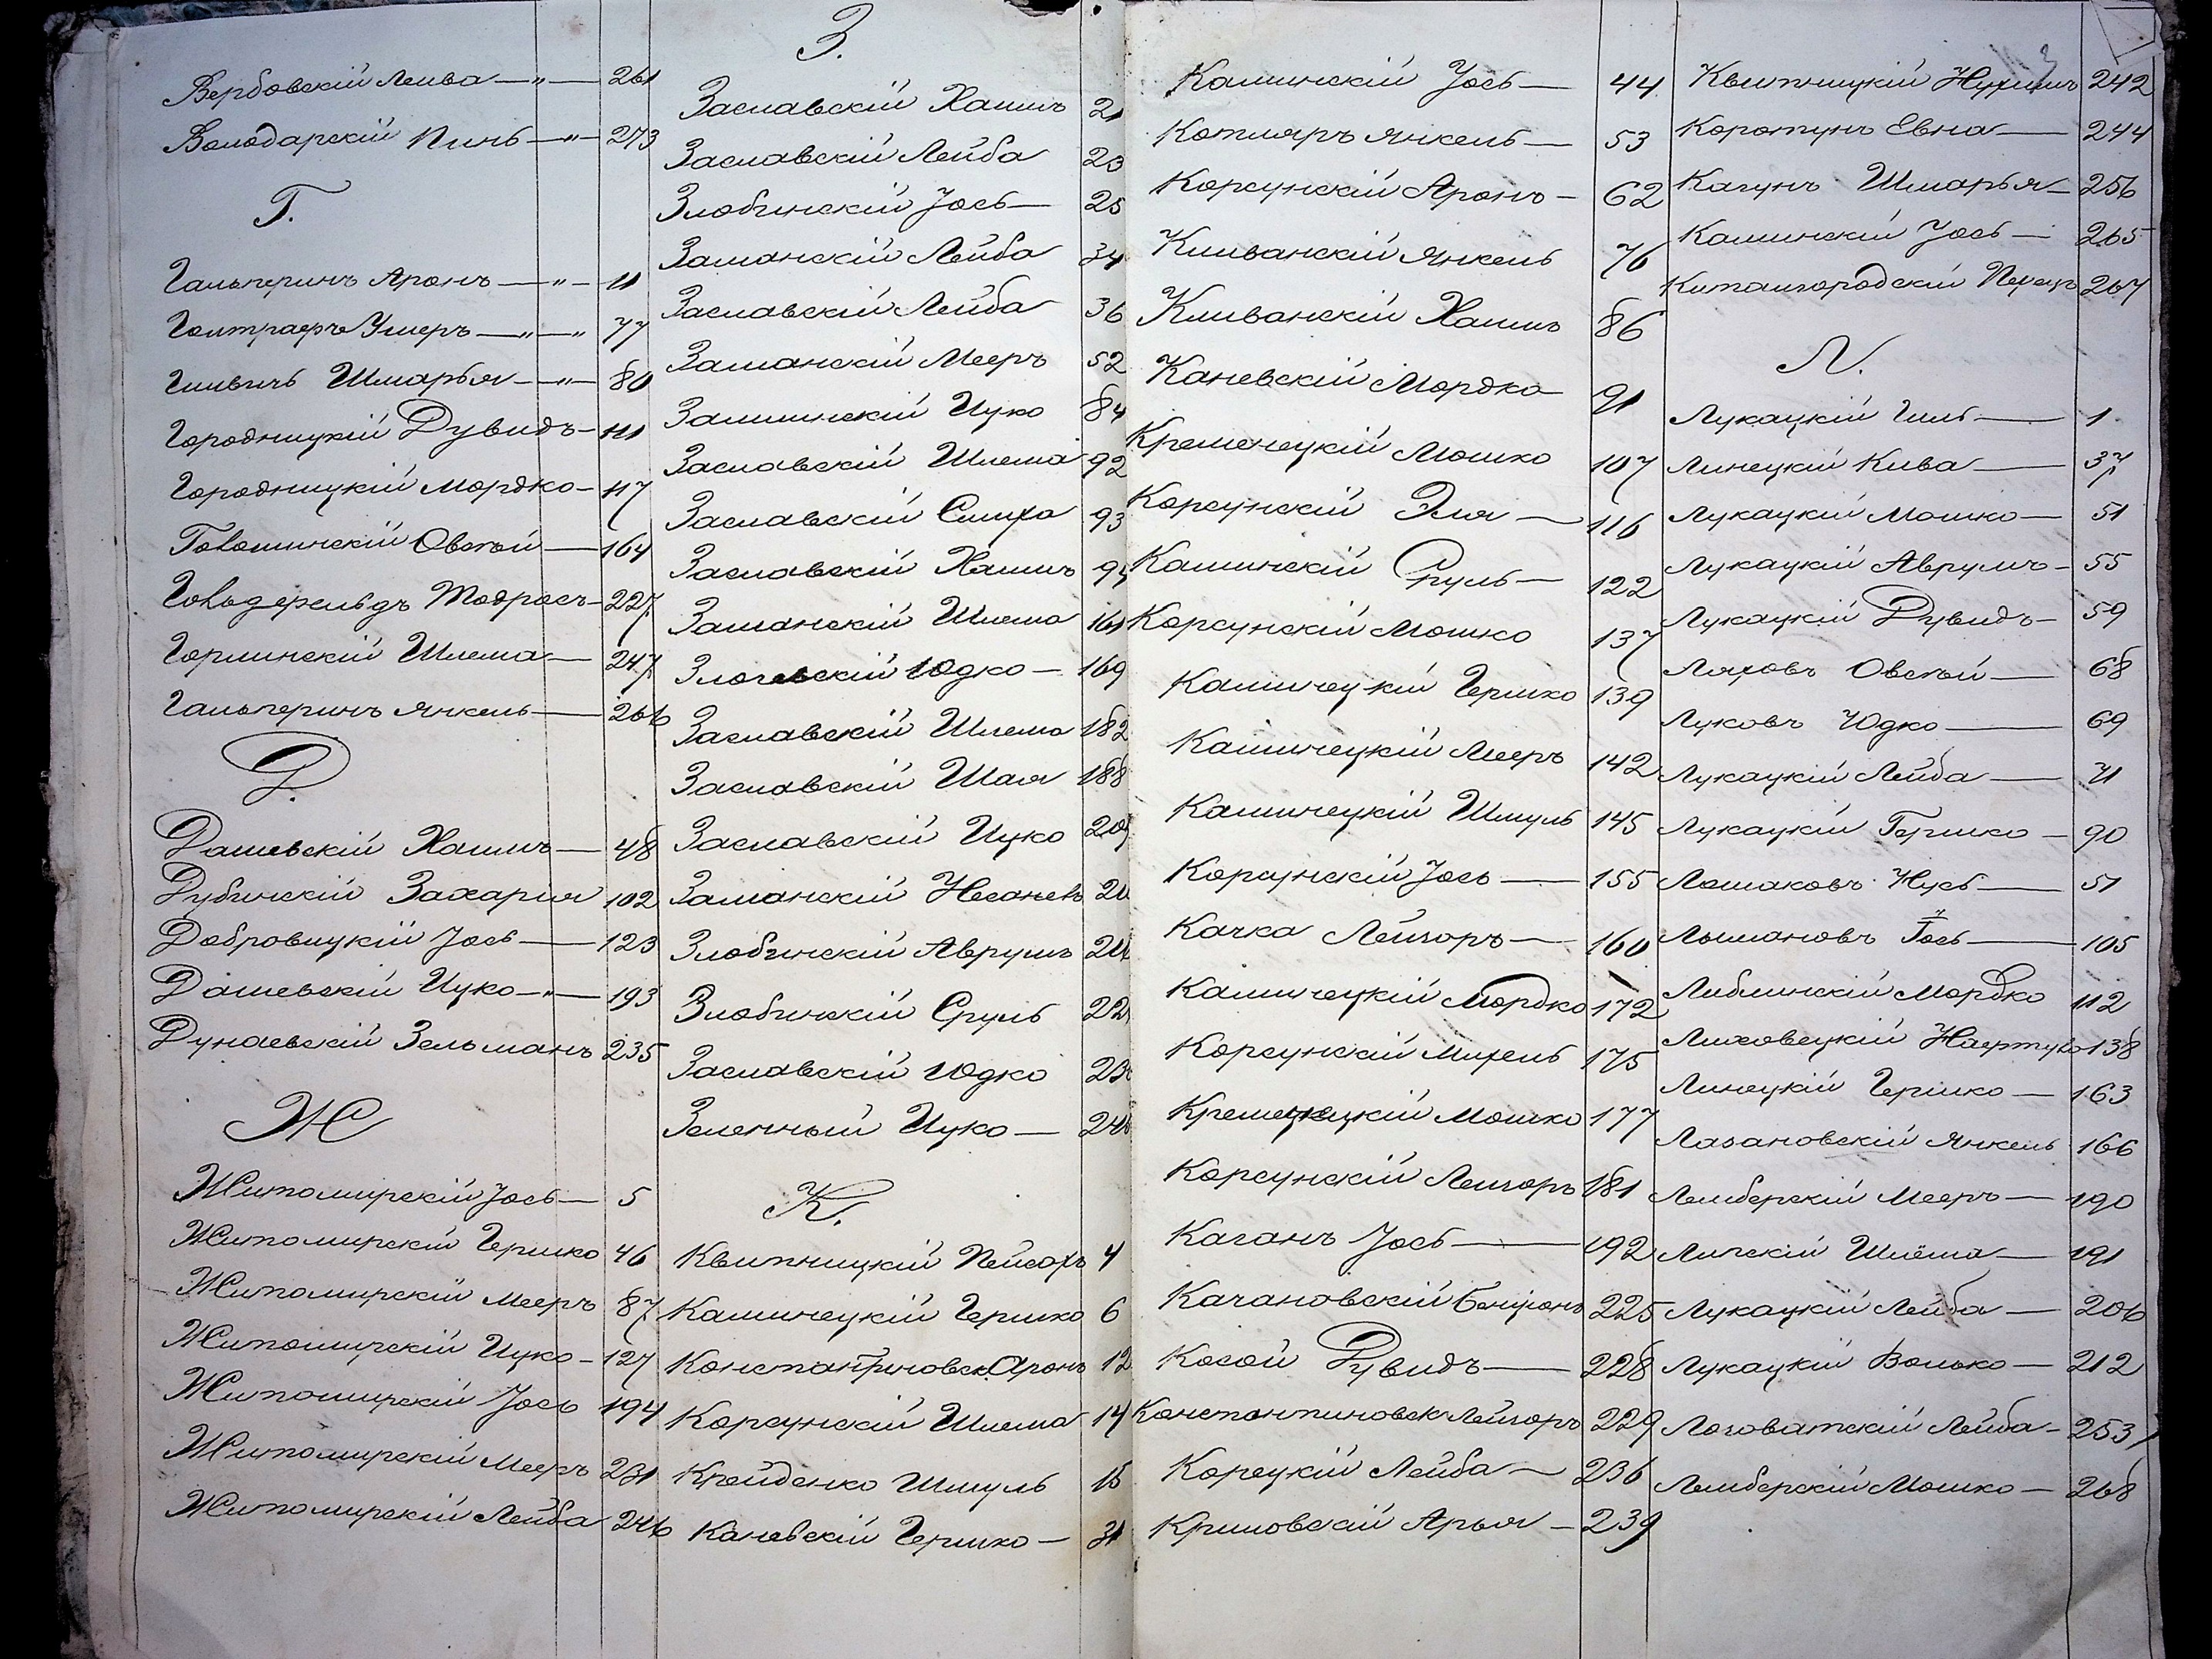 Вербовскій Лейба —„— 261
Володарскій Пинь —„— 273
Г.
Гальперинъ Аронъ —„— 11
Гольтрафъ Умеръ —„—„ 77
Гилвичь Шмарья —„— 80
Городницкій Дувидъ — 111
Городницкій Мордко — 117
Голошинскій Овсѣй — 164
Гольдфельдъ Тодросъ — 227
Горлинскій Шлема — 247
Гальперинъ Янкель — 266
Д.
Дашевскій Хаимъ — 48
Дубинскій Захарія 102
Добровицкій Іось — 123
Дашевскій Ицко —„— 193
Дунаевскій Зельманъ 235
Ж
Житомирскій Іось — 5
Житомирскій Гершко 46
Житомирскій Мееръ 87
Житомирскій Ицко — 127
Житомирскій Іось 194
Житомирскій Мееръ 231
Житомирскій Лейба 246
З.
Заславскій Хаимъ 21
Заславскій Лейба 23
Злобинскій Іось — 25
Заманскій Лейба 34
Заславскій Лейба 36
Заманскій Мееръ 52
Ицко 84
Заславскій Шлема 92
Заславскій Симха 93
Заславскій Хаимъ 94
Заманскій Шлема 161
Юдко — 169
Заславскій Шлема 182
Заславскій Шая 188
Заславскій Ицко
Заманскій
Злобинскій Аврумъ
Злобинскій Сруль
Заславскій Юдко
Зеленный Ицко —
К.
Квитницкій Пейсахъ 4
Каминецкій Гершко 6
Константиновск. Аронъ 12
Корсунскій Шлема 14
Крейденко Шмуль
Каневскій Гершко — 31
Каминскій Іось — 44
Котляръ Янкель — 53
Корсунскій Аронъ — 62
Кливанскій Янкель 76
Кливанскій Хаимъ 86
Каневскій Мордко 91
Кременецкій Мошко 107
Корсунскій Эля — 116
Каминскій Сруль — 122
Корсунскій Мошко 137
Каминецкій Гершко 139
Каминецкій Мееръ 142
Каминецкій Шмуль 145
Корсунскій Іось — 155
Качка Лейзоръ — 160
Каминецкій Мордко 172
Корсунскій Михель 175
Кременецкій Мошко 177
Корсунскій Лейзоръ 181
Каганъ Іось — 192
Качановскій Бенціонъ 225
Косой Дувидъ — 228
Константиновск. Лейзоръ 229
Корецкій Лейба — 236
Криловскій Арья — 239
Квитницкій Нухимъ 242
Коротунъ Евна — 244
Кагунъ Шмарья — 256
Каминскій Іось — 265
Китайгородскій Перецъ 267
Л.
Лукацкій Гиль — 1
Линецкій Кива — 37
Лукацкій Мошко — 51
Лукацкій Аврумъ — 55
Лукацкій Дувидъ — 59
Ляховъ Овсѣй — 68
Луковъ Юдко — 69
Лукацкій Лейба — 71
Лукацкій Гершко — 90
Лошаковъ Нусь — 51
Лошмановъ Іось — 105
Либлинскій Мордко 112
Лиховецкій Нафтула 138
Линецкій Гершко — 163
Лазановскій Янкель 166
Лемберскій Мееръ — 190
Липскій Шлёма — 191
Лукацкій Лейба — 206
Лукацкій Волько — 212
Логоватскій Лейба — 253
Лемберскій Мошко — 268